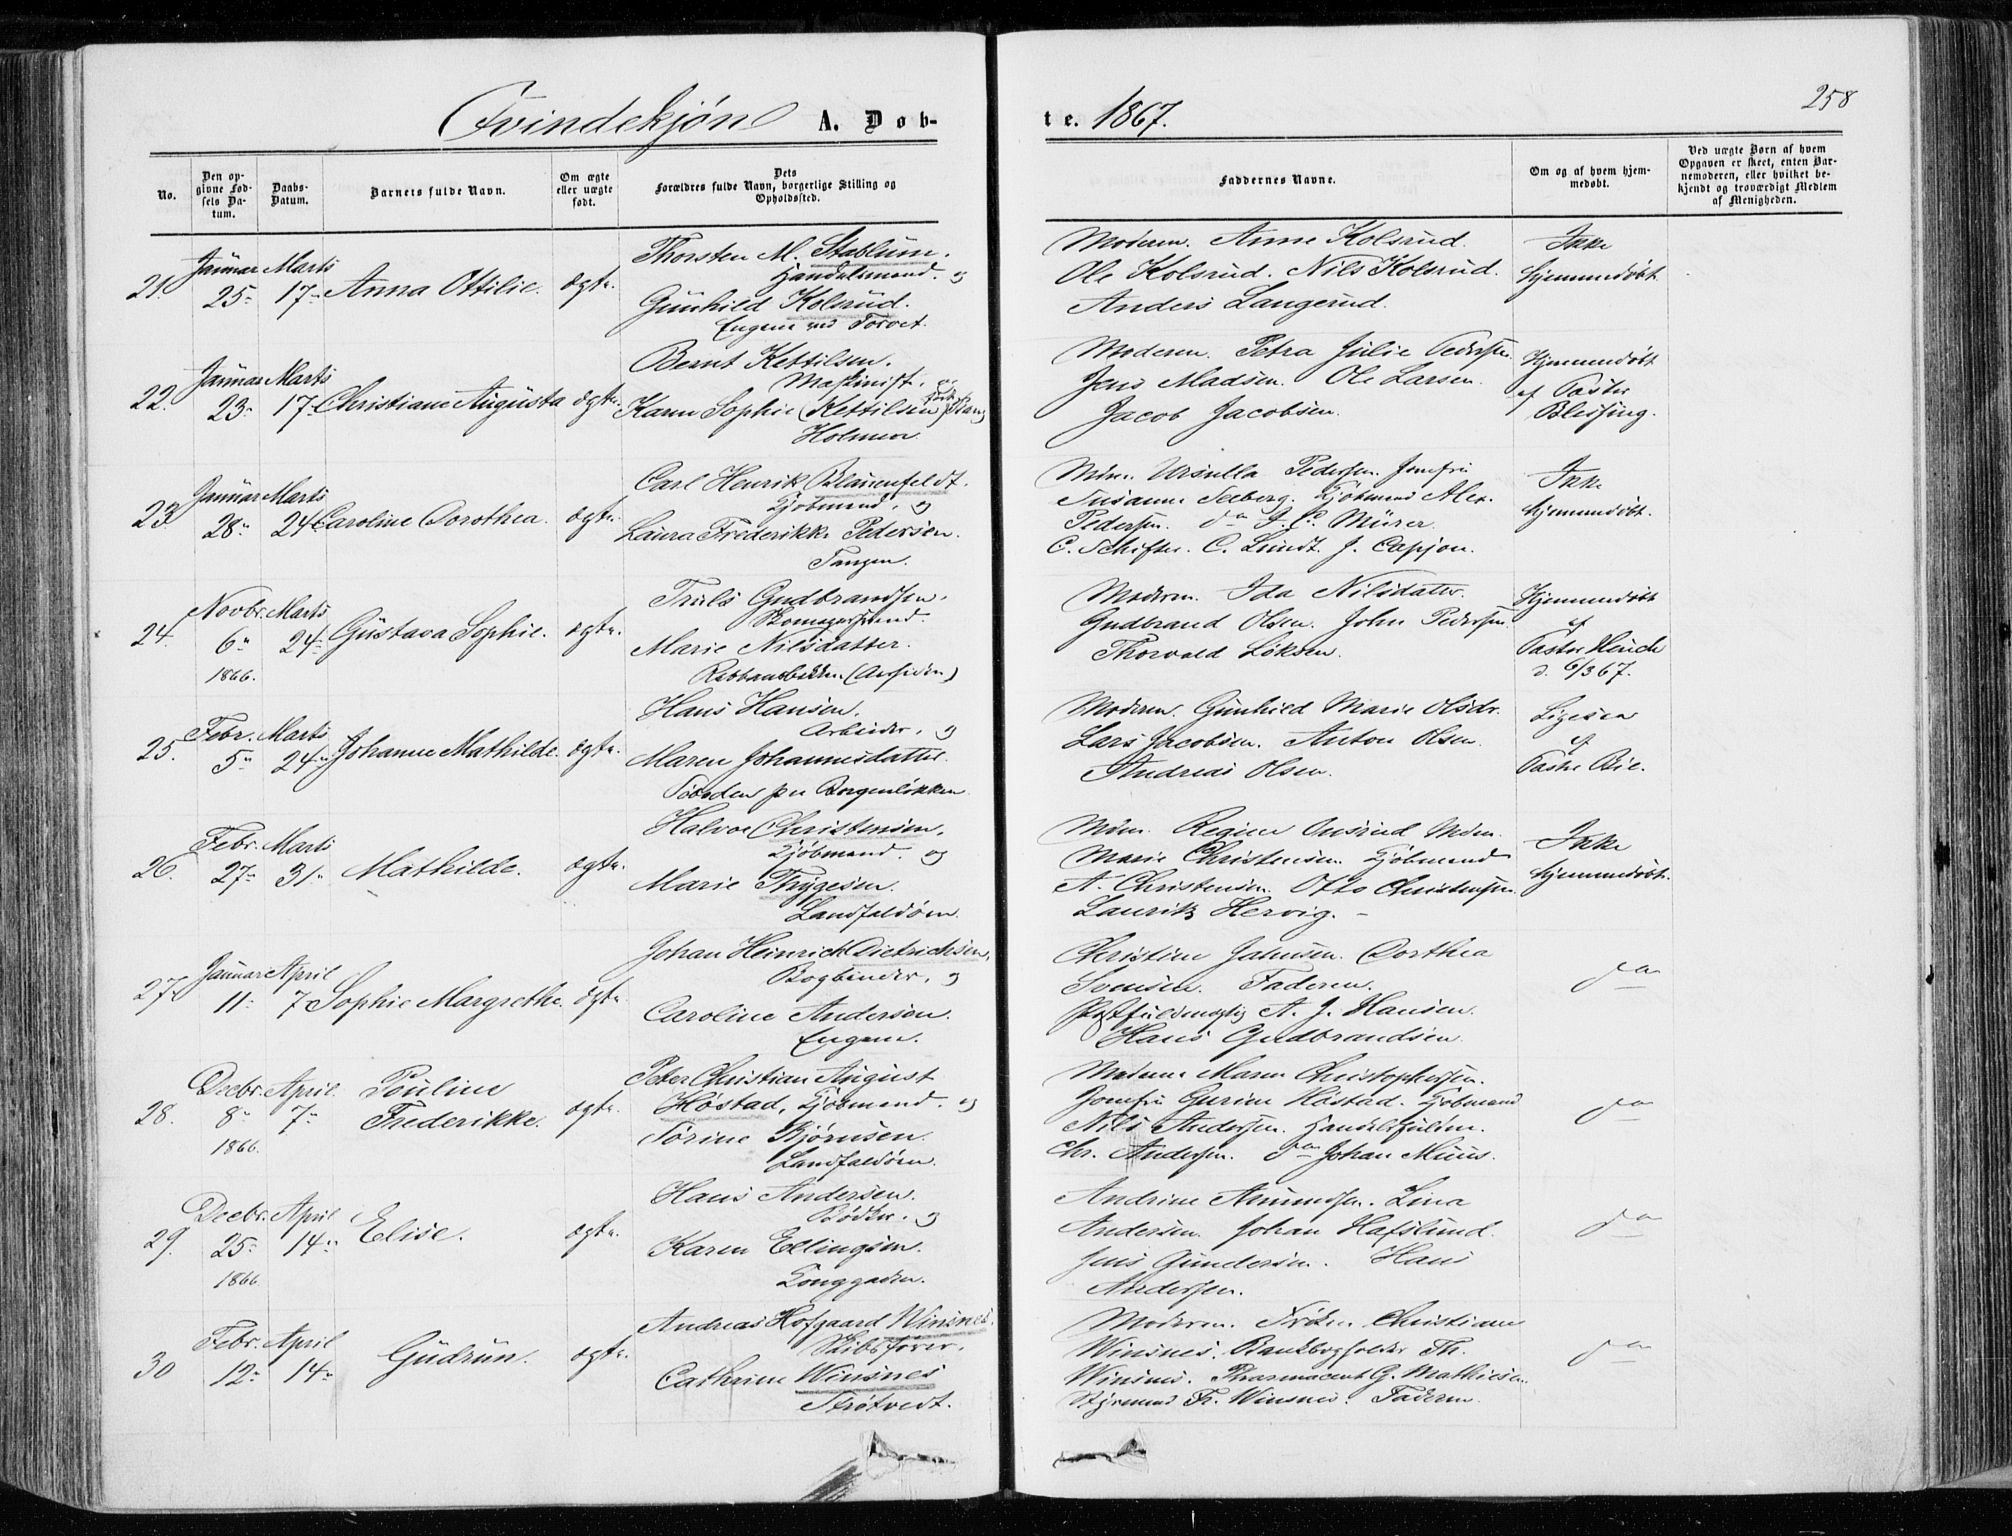 258
Qvindekjøn A. Døb-
te. 1867.
No.
Den op-
givne Fød-
sels Da-
tum.
Daabs-
Datum.
Barnets fulde Navn.
Om ægte
eller uægte
født.
Dets
Forældres fulde Navn, borgerlige Stilling og
Opholdssted.
Faddernes Navne.
Om og af hvem hjem-
medøbt.
Ved uægte Børn af hvem
Opgaven er skeet, enten Bar-
nemoderen, eller hvilket be-
kjendt og troværdigt Medlem
af Menigheden.
21.
Januar
25
Marts
17
Anna Ottilie.
ægte.
Thorsten M. Stablum.
Handelsmand. og
Gunhild Kolsrud.
Engene ved Torvet.
Moderen. Anne Kolsrud.
Ole Kolsrud. Nils Kolsrud.
Anders Langerud.
Ikke
hjemmedøbt.
22.
Januar
23
Marts
17
Christiane Augusta
ægte.
Bernt Kettilsen.
Maskinist. og
Karen Sophie Kettilsen
Holmen
Moderen. Petra Julie Pedersen.
Jens Madsen. Ole Larsen.
Jacob Jacobsen.
Hjemmedøbt
af Pastor
Blessing.
23
Januar
28
Marts
24
Caroline Dorothea.
ægte.
Carl Henrik Blauenfeldt.
Kjøbmand. og
Laura Frederikke Pedersen.
Tangen.
Mdm. Ursulla Pedersen. Jomfru
Susanne Seeberg. Kjøbmand Alex.
Pedersen. do I. C. Mürer.
C. Schifter. C. Lundt. J. Capjon.
Ikke
hjemmedøbt.
24.
Novbr.
6
1866.
Marts
24
Gustava Sophie.
ægte.
Truls Gudbrandsen.
Skomagersvend.
Marie Nilsdatter.
Moderen. Ida Nilsdatter.
Gudbrand Olsen. John Pedersen.
Thorvald Løksen.
Hjemmedøbt
af
Pastor Heuch
d. 6/3 67.
25.
Febr.
5
Marts
24
Johanne Mathilde.
ægte.
Hans Hansen.
Arbeider. og
Maren Johannesdatter
Moderen. Gunhild Marie Olsdr.
Lars Jacobsen. Anton Olsen.
Andreas Olsen.
Ligesaa
af
Pastor Bie.
26.
Febr.
27
Marts
31
Mathilde.
ægte.
Halvor Christensen.
Kjøbmand. og
Marie Thygesen.
Landfaldøen.
Mdm. Regine Mdm.
Marie Christensen. Kjøbmand
A. Christensen. Otto Christensen.
Laurits Hervig.
Ikke
hjemmedøbt.
27
Januar
11
April
7
Sophie Margrethe.
ægte.
Johan Heinrich Dietrichsen.
Bogbinder. og
Caroline Andersen.
Engene.
Christine Johnsen. Dorthea
Svensen. Faderen.
Postfuldmægtig A. J. Hansen.
Hans Gudbrandsen
do
28.
Decbr.
8
1866.
April
7
Pouline
Frederikke.
ægte.
Peter Christian August
Høstad, Kjøbmand. og
Torine Bjørnsen.
Landfaldøen.
Madame Maren Christophersen.
Jomfru Gurine Høstad. Kjøbmand
Nils Andersen. Handelsfuldm.
Chr. Andersen. do Johan Muus.
do
29.
Decbr.
25
1866.
April
14
Elise.
ægte.
Hans Andersen.
Bødker. og
Karen Ellingsen.
Konggaden.
Andrine Amundsen. Lina
Andersen. Johan Hafslund.
Jens Gundersen. Hans
Andersen.
do
30
Febr.
12
April
14
Gudrun.
ægte.
Andreas Hofgaard Winsnes.
Skibsfører.
Cathrine Winsnes
Strøtvedt.
Moderen. Frøken Christiane
Winsnes. Bankbogholder Th.
Winsnes. Pharmaceut G. Mathiesen.
Styrmand Fr. Winsnes. Faderen
do